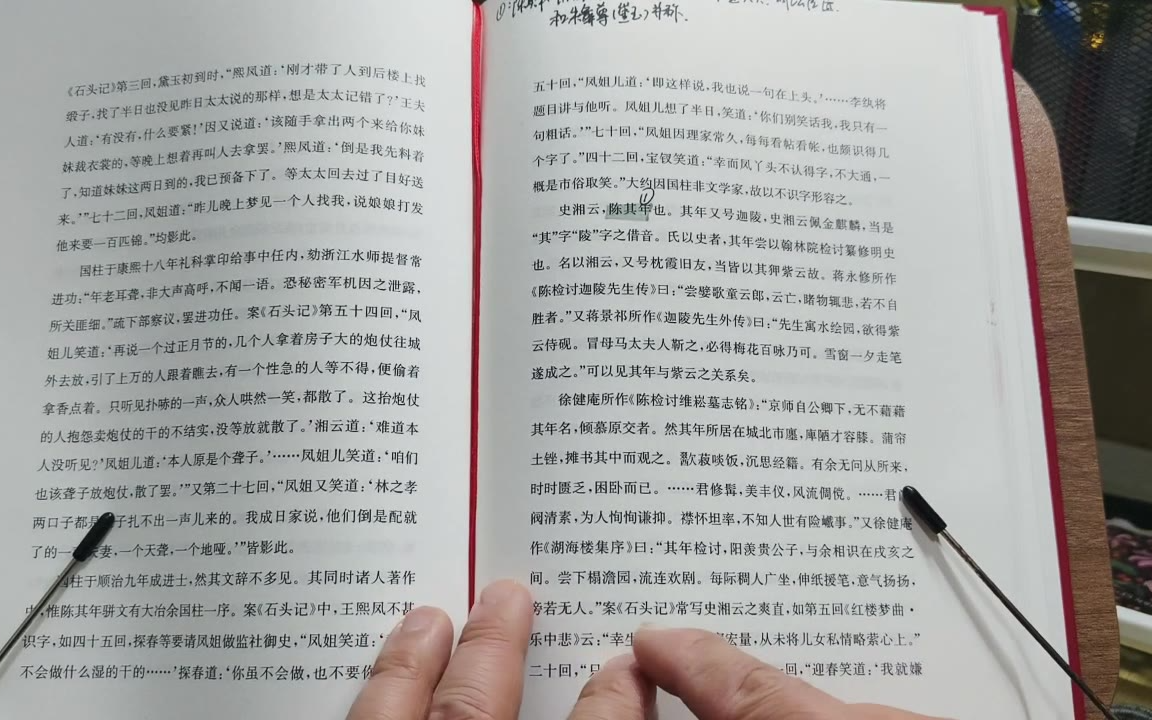 《石头记》第三回，黛玉初到时，“熙凤道：‘刚才带了人到后楼上找
缎子，我了半日也没见昨日太太说的那样，想是太太记错了？’王夫
人道：‘有没有，什么要紧！’因又说道：‘该随手拿出两个来给你妹
妹裁衣裳的，等晚上想着再叫人去拿罢。’熙凤道：‘倒是我先料着
了，知道妹妹这两日到的，我已预备下了。等太太回去过了目好送
来。’”七十二回，凤姐道：“昨儿晚上梦见一个人找我，说娘娘打发
他来要一百匹锦。”均影此。
国柱于康熙十八年礼科掌印给事中任内，劾浙江水师提督常
进功：“年老耳聋，非大声高呼，不闻一语。恐秘密军机因之泄露，
所关匪细。”疏下部察议，罢进功任。案《石头记》第五十四回，“凤
姐儿笑道：‘再说一个过正月节的，几个人拿着房子大的炮仗往城
外去放，引了上万的人跟着瞧去，有一个性急的人等不得，便偷着
拿香点着。只听见扑哧的一声，众人哄然一笑，都散了。这抬炮仗
的人抱怨卖炮仗的干的不结实，没等放就散了。’湘云道：‘难道本
人没听见？’凤姐儿道：‘本人原是个聋子。’……凤姐儿笑道：‘咱们
也该聋子放炮仗，散了罢。’”又第二十七回，“凤姐又笑道：‘林之孝
两口子都是 子扎不出一声儿来的。我成日家说，他们倒是配就
了的一 夫妻，一个天聋，一个地哑。’”皆影此。
国柱于顺治九年成进士，然其文辞不多见。其同时诸人著作
中，惟陈其年骈文有大冶余国柱一序。案《石头记》中，王熙凤不甚
识字，如四十五回，探春等要请凤姐做监社御史，“凤姐笑道：‘
不会做什么湿的干的……’探春道：‘你虽不会做，也不要你
和朱彝尊（黛玉）并称．
五十回，“凤姐儿道：‘即这样说，我也说一句在上头。’……李纨将
题目讲与他听。凤姐儿想了半日，笑道：‘你们别笑话我，我只有一
句粗话。’”七十回，“凤姐因理家常久，每每看帖看帐，也颇识得几
个字了。”四十二回，宝钗笑道：“幸而凤丫头不认得字，不大通，一
概是市俗取笑。”大约因国柱非文学家，故以不识字形容之。
史湘云，陈其年也。其年又号迦陵，史湘云佩金麒麟，当是
“其”字“陵”字之借音。氏以史者，其年尝以翰林院检讨纂修明史
也。名以湘云，又号枕霞旧友，当皆以其狎紫云故。蒋永修所作
《陈检讨迦陵先生传》曰：“尝嬖歌童云郎，云亡，睹物辄悲，若不自
胜者。”又蒋景祁所作《迦陵先生外传》曰：“先生寓水绘园，欲得紫
云侍砚。冒母马太夫人靳之，必得梅花百咏乃可。雪窗一夕走笔
遂成之。”可以见其年与紫云之关系矣。
徐健庵所作《陈检讨维崧墓志铭》：“京师自公卿下，无不藉藉
其年名，倾慕原交者。然其年所居在城北市廛，庳陋才容膝。蒲帘
土锉，摊书其中而观之。歠菽啖饭，沉思经籍。有余无问从所来，
时时匮乏，困卧而已。……君修髯，美丰仪，风流倜傥。……君
阀清素，为人恂恂谦抑。襟怀坦率，不知人世有险巇事。”又徐健庵
作《湖海楼集序》曰：“其年检讨，阳羡贵公子，与余相识在戌亥之
间。尝下榻澹园，流连欢剧。每际稠人广坐，伸纸援笔，意气扬扬，
旁若无人。”案《石头记》常写史湘云之爽直，如第五回《红楼梦曲·
乐中悲》云：“幸生 宏量，从未将儿女私情略萦心上。”
二十回，“只 回，“迎春笑道：‘我就嫌